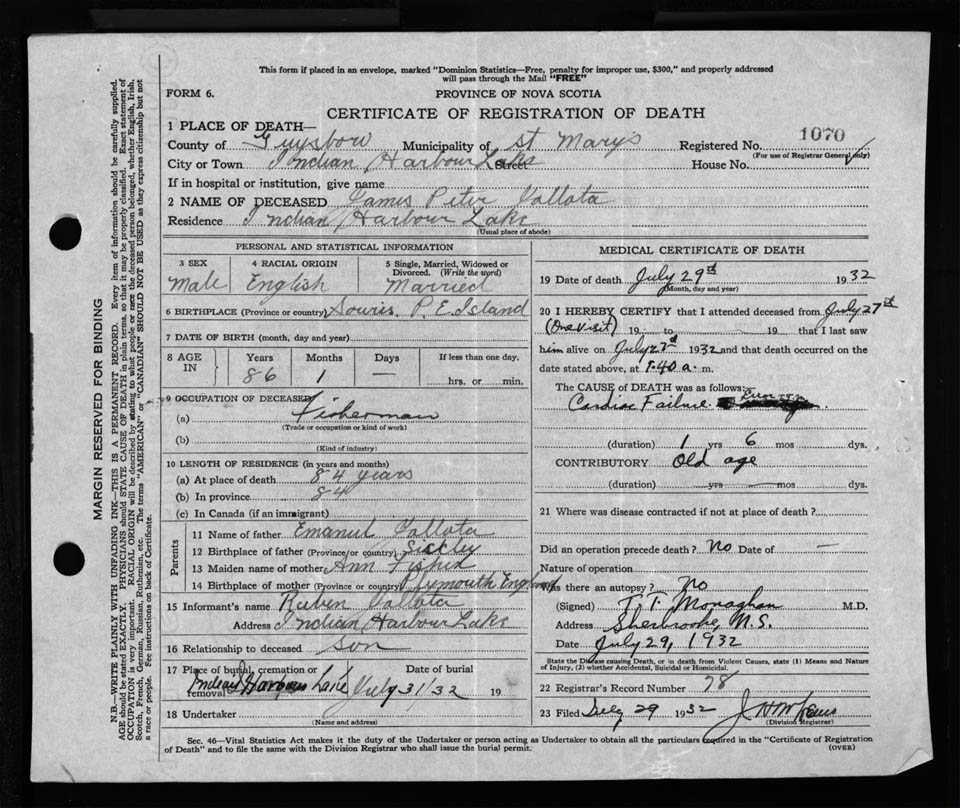 This form if placed in an envelope, marked "Dominion Statistics—Free, penalty for improper use, $300," and properly addressed
will pass through the Mail "FREE"
FORM 6.
PROVINCE OF NOVA SCOTIA
CERTIFICATE OF REGISTRATION OF DEATH
1 PLACE OF DEATH—
1070
County of Guysboro Municipality of St Mary's Registered No.
(For use of Registrar General only)
City or Town Indian Harbour Lake Street House No.
If in hospital or institution, give name
2 NAME OF DECEASED James Peter Jallota
Residence Indian Harbour Lake
(Usual place of abode)
PERSONAL AND STATISTICAL INFORMATION
3 SEX 4 RACIAL ORIGIN 5 Single, Married, Widowed or Divorced. (Write the word)
Male English Married
6 BIRTHPLACE (Province or country) Souris, P. E. Island
7 DATE OF BIRTH (month, day and year)
8 AGE IN Years Months Days If less than one day,
86 1 — hrs. or min.
9 OCCUPATION OF DECEASED
(a) Fisherman
(Trade or occupation or kind of work)
(b)
(Kind of industry)
10 LENGTH OF RESIDENCE (in years and months)
(a) At place of death 84 years
(b) In province 84
(c) In Canada (if an immigrant)
Parents
11 Name of father Emanuel Jallota
12 Birthplace of father (Province or country) Siceley
13 Maiden name of mother Ann Fisher
14 Birthplace of mother (Province or country) Plymouth England
15 Informant's name Ruben Jallota
Address Indian Harbour Lake
16 Relationship to deceased son
17 Place of burial, cremation or removal Date of burial
Indian Harbour Lake July 31/32 19
18 Undertaker
(Name and address)
MEDICAL CERTIFICATE OF DEATH
19 Date of death July 29th 1932
(Month, day and year)
20 I HEREBY CERTIFY that I attended deceased from July 27th
(One visit) 19 to 19 that I last saw
him alive on July 27th 1932 and that death occurred on the
date stated above, at 1.40 a. m.
The CAUSE of DEATH was as follows:—
Cardiac Failure. Error
(duration) 1 yrs 6 mos dys.
CONTRIBUTORY Old age
(duration) yrs mos dys.
21 Where was disease contracted if not at place of death?
Did an operation precede death? No Date of —
Nature of operation
Was there an autopsy? No
(Signed) T. T. Monaghan M.D.
Address Sherbrooke, N.S.
Date July 29, 1932
State the Disease causing Death, or in death from Violent Causes, state (1) Means and Nature
of Injury, (2) whether Accidental, Suicidal or Homicidal.
22 Registrar's Record Number 78
23 Filed July 29 1932
(Division Registrar)
Sec. 46—Vital Statistics Act makes it the duty of the Undertaker or person acting as Undertaker to obtain all the particulars required in the "Certificate of Registration
of Death" and to file the same with the Division Registrar who shall issue the burial permit.
(OVER)
MARGIN RESERVED FOR BINDING
N.B.—WRITE PLAINLY WITH UNFADING INK—THIS IS A PERMANENT RECORD. Every item of information should be carefully supplied.
AGE should be stated EXACTLY. PHYSICIANS should STATE CAUSE OF DEATH in plain terms, so that it may be properly classified. Exact statement of
OCCUPATION is very important. RACIAL ORIGIN will be described by stating to what people or race the deceased person belonged, whether English, Irish,
Scotch, French, German, Russian, Ruthenian, etc. The terms "AMERICAN" or "CANADIAN" SHOULD NOT BE USED as they express citizenship but not
a race or people. See instructions on back of Certificate.